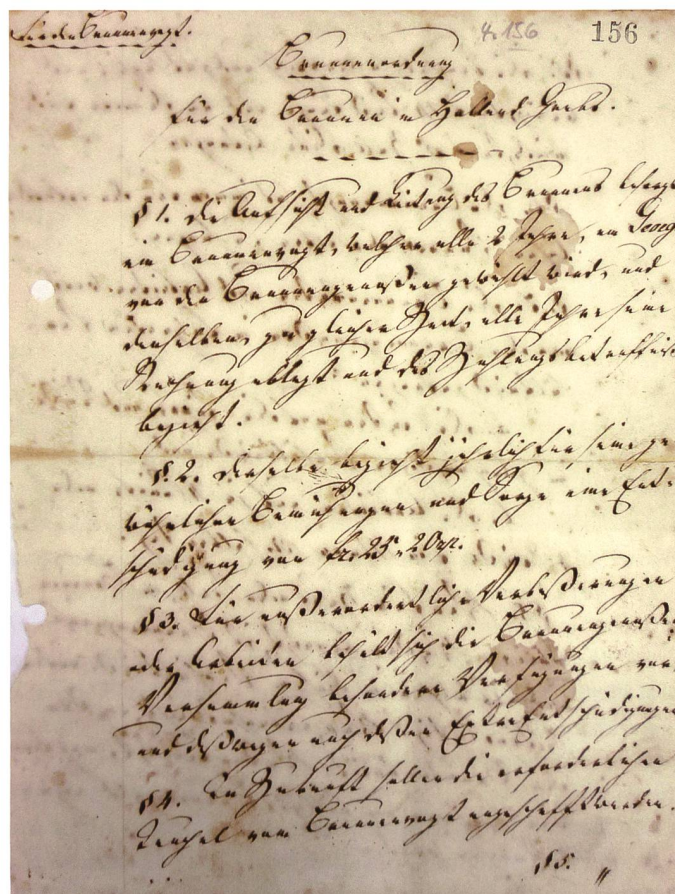 Für den Brunnenvogt.
4. 156
156
Brunnenordnung
für den Brunnen in
§ 1. Die Aufsicht und Leitung des Brunnens besorgt
ein Brunnenvogt, welcher alle 2 Jahre, an Georg
von den Brunnengenoßen gewählt wird, und
denselben, zu gleicher Zeit, alle Jahre seine
Rechnung ablegt und das Zahlungsbetreffniß
bezieht.
§. 2. Derselbe bezieht jährlich für seine ge-
wöhnlichen Bemühungen und Sorge eine Ent-
schädigung von fr. 25. 20 rp.
§ 3. Für außerordentliche Verbeßerungen
oder Arbeiten behält sich die Brunnengenoßen
Versammlung besondere Verfügungen vor
und deßwegen auch deßen Extra Entschädigungen
§ 4. In Zukunft sollen die erforderlichen
Teuchel vom Brunnenvogt angeschafft werden.
§ 5. "